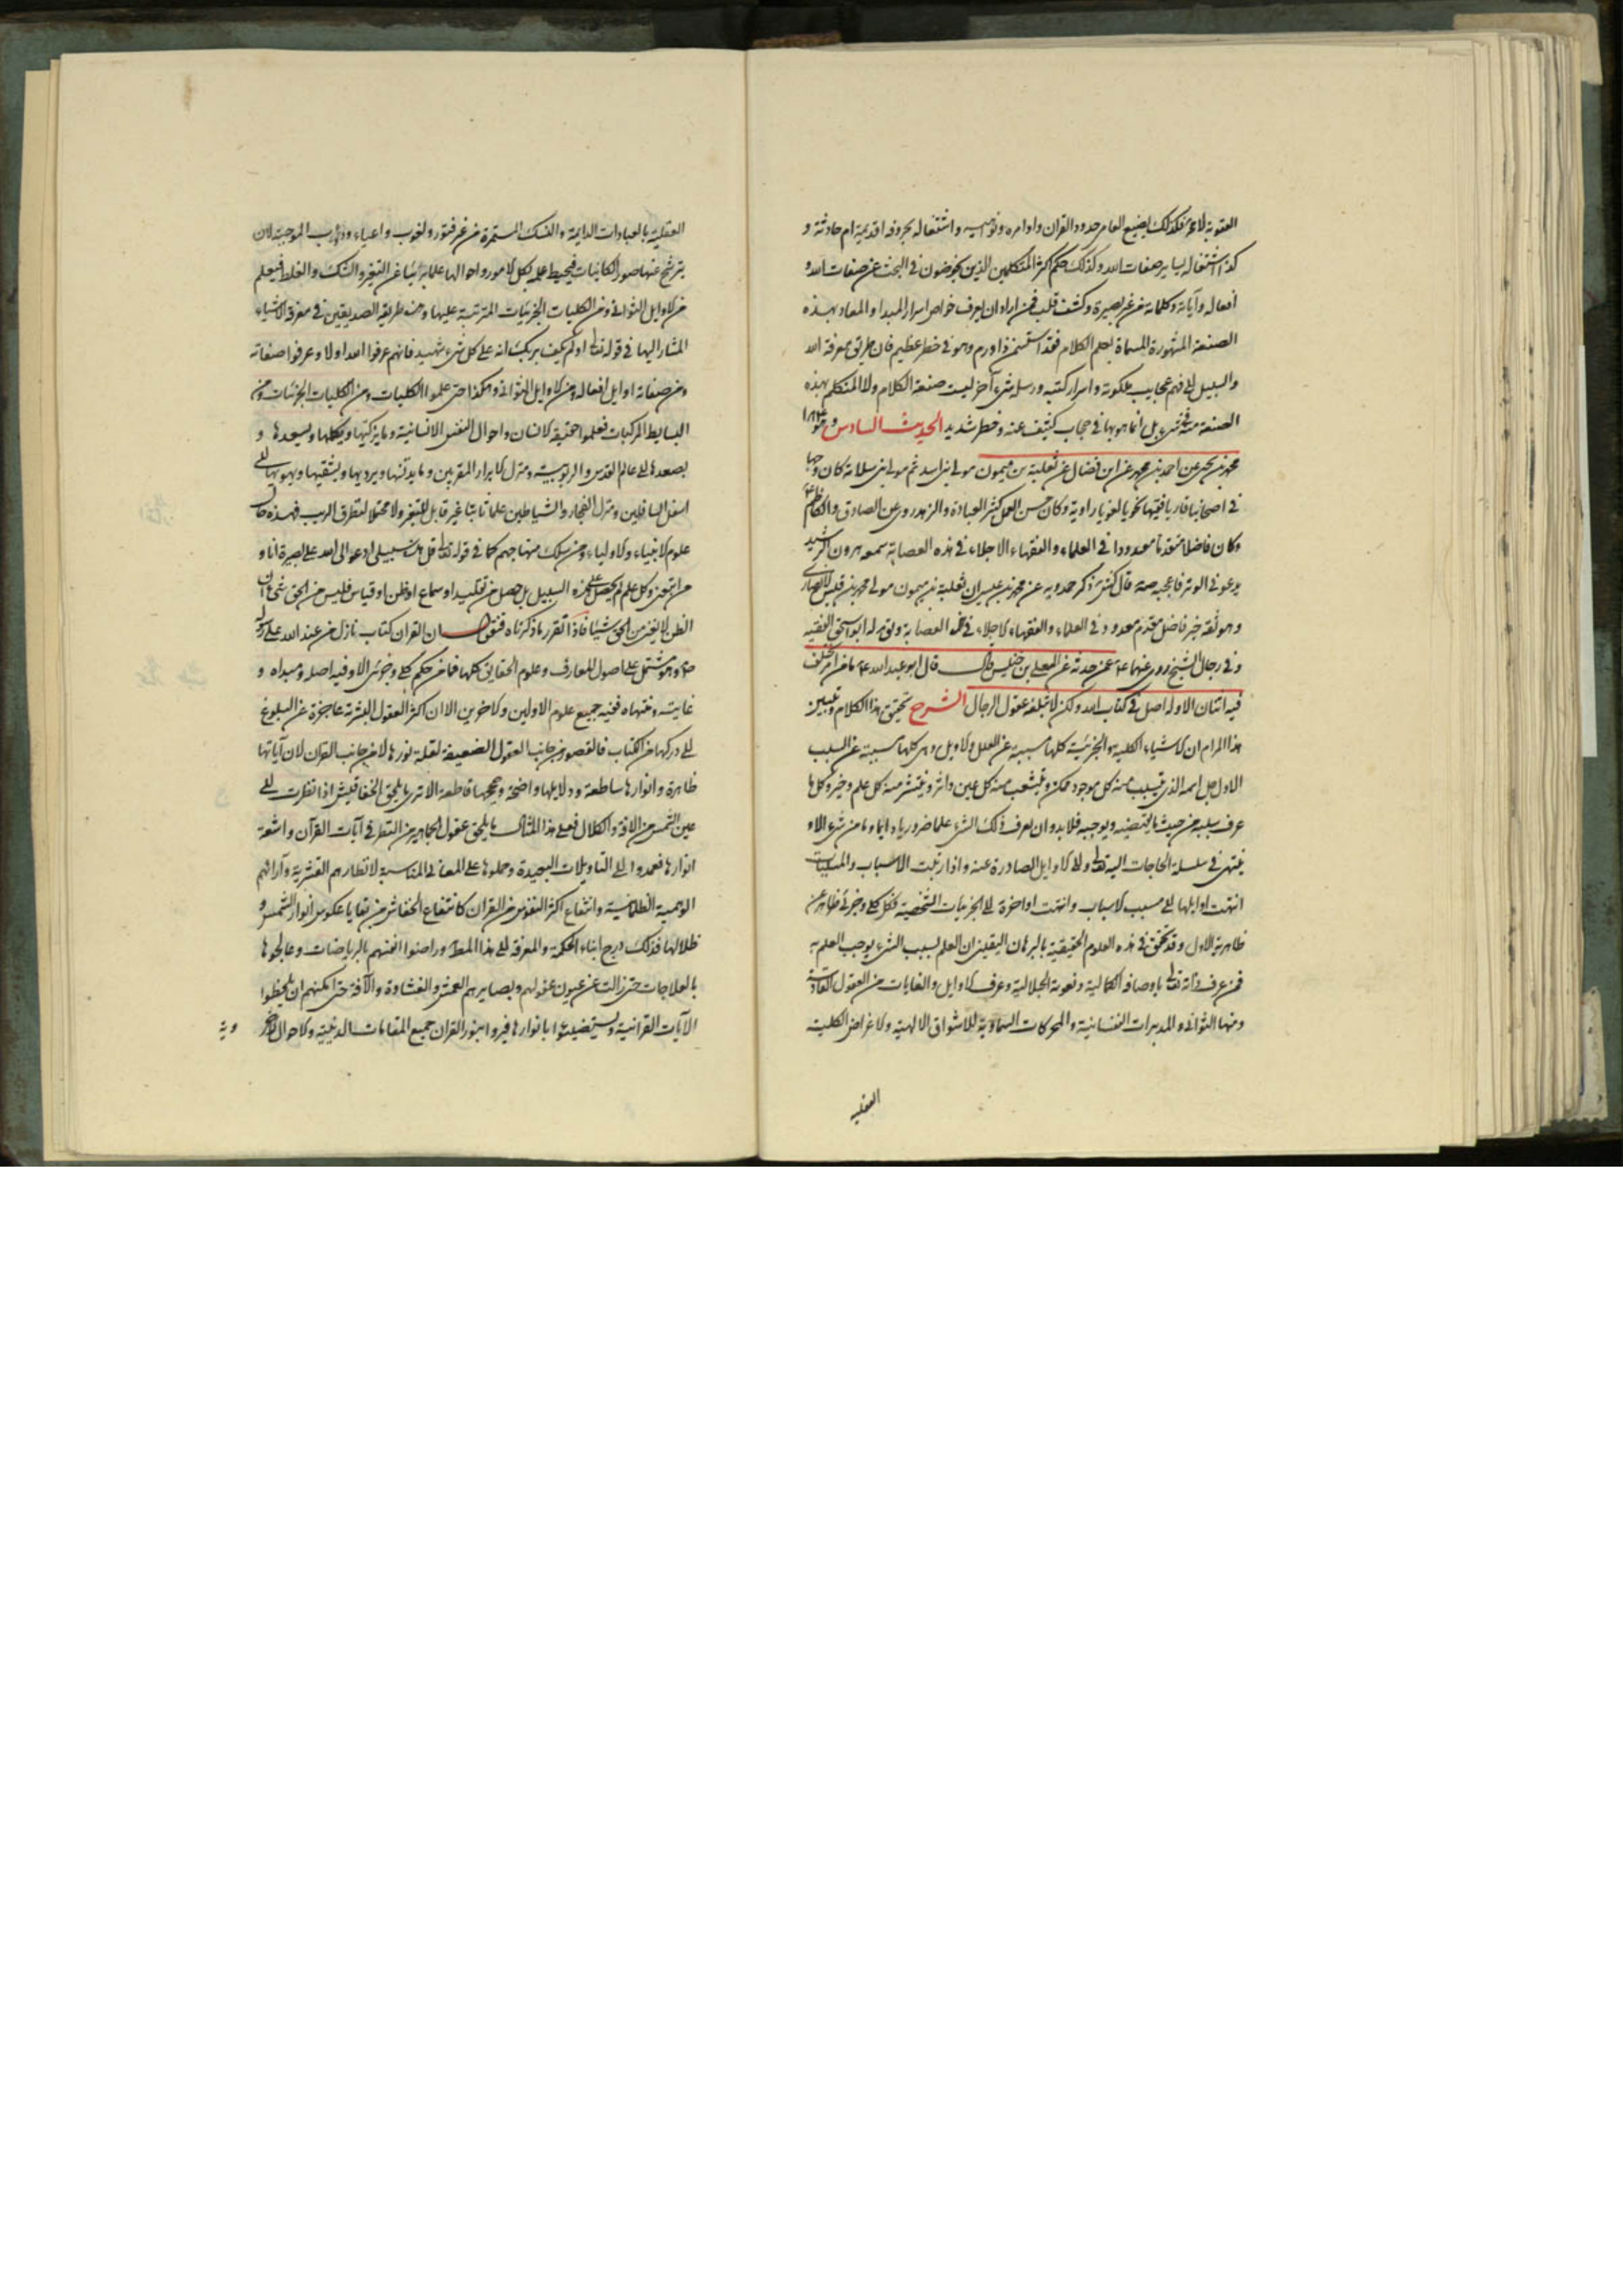 العقوبة لا محة فكذلك يضيع العامر حدود القران واوامره ونواهيه واشتغاله بحروفه اقديمة ام حادثة و
كذا اشتغاله بساير صفات الله وكذلك حكم اكثر المتكلمين الذين يخوضون في البحث عن صفات الله و
افعاله وآياته وكلماته من غير بصيرة وكشف قلب فمن اراد ان يعرف خواص اسرار المبدا والمعاد بهذه
الصنعة المشهورة المسماة بعلم الكلام فقد استسمن ذا ورم وهو في خطر عظيم فان طريق معرفة الله
والسبيل الى فهم عجايب ملكوته واسرار كتبه ورسله شيء آخر ليست صنعة الكلام ولا المتكلم بهذه
الصنعة منه في شيء بل انما هو بها في حجاب كثيف عنه وخطر شديد الحديث السادس و هو
محمد بن يحيى عن احمد بن محمد عن ابن فضال عن ثعلبة بن ميمون مولى بني اسد ثم مولى بني سلامة كان وجها
في اصحابنا قاريا فقيها نحويا لغويا راوية وكان حسن العمل كثير العبادة والزهد روى عن الصادق والكاظم
وكان فاضلا متقدما معدودا في العلماء والفقهاء الاجلاء في هذه العصابة سمعه هرون الرشيد
يدعو في الوتر فاعجبه صه قال كش ذكر حمدويه عن محمد بن عيسى ان ثعلبة بن ميمون مولى محمد بن قيس الانصاري
وهو ثقة خير فاضل مقدم معدود في العلماء والفقهاء الاجلاء في هذه العصابة ويق له ابو اسحق الفقيه
وفي رجال الشيخ روى عنهما ع عمن حدثه عن المعلى بن خنيس قال قال ابو عبد الله ع ما من امر يختلف
فيه اثنان الا وله اصل في كتاب الله ولكن لا تبلغه عقول الرجال الشرح تحقيق هذا الكلام وتبيين
هذا المرام ان الاشياء الكلية والجزئية كلها مسببة عن العلل والاوايل وهي كلها مسببة عن السبب
الاول جل اسمه الذي يتسبب منه كل موجود ممكن ويتشعب منه كل عين واثر وينتشر منه كل علم وخير وكل ما
عرف سببه من حيث ما يقتضيه ويوجبه فلا بد وان يعرف ذلك الشيء علما ضروريا دايما وما من شيء الا و
ينتهي في سلسلة الحاجات اليه تعالى والى الاوايل الصادرة عنه واذا رتبت الاسباب والمسببات
انتهت اوايلها الى مسبب الاسباب وانتهت اواخره الى الجزييات الشخصية فكل كلي وجزئي ظاهر عن
ظاهرية الاول وقد تحقق في هذه العلوم الحقيقية بالبرهان اليقيني ان العلم بسبب الشيء يوجب العلم به
فمن عرف ذاته تعالى باوصافه الكمالية ونعوته الجلالية وعرف الاوايل والغايات من العقول القادسة
ومنها الثواني والمدبرات النفسانية والمحركات السماوية للاشواق الالهية والاغراض الكلية
العقلية
العقلية بالعبادات الدايمة والنسك المستمرة من غير فتور ولغوب واعياء ودؤب الموجبة لان
يترشح عنها صور الكاينات فيحيط علمه بكل الامور واحوالها علما بريئا عن التغير والشك والغلط فيعلم
من الاوايل الثواني ومن الكليات الجزئيات المترتبة عليها وهذه طريقة الصديقين في معرفة الاشياء
المشار اليها في قوله تعالى اولم يكف بربك انه على كل شيء شهيد فانهم عرفوا الله اولا وعرفوا صفاته
ومن صفاته اوايل افعاله ومن الاوايل الثواني وهكذا حتى علموا الكليات ومن الكليات الجزئيات ومن
البسايط المركبات فعلموا حقيقة الانسان واحوال النفس الانسانية وما يزكيها ويكملها ويسعدها و
يصعدها الى عالم القدس والربوبية ومنزل الابرار المقربين وما يدنسها ويرديها ويشقيها ويهويها الى
اسفل السافلين ومنزل الفجار والشياطين علما ثابتا غير قابل للتغير ولا محتمل لتطرق الريب فهذه حال
علوم الانبياء والاولياء ومن سلك منهاجهم كما في قوله تعالى قل هذه سبيلي ادعو الى الله على بصيرة انا و
من اتبعني وكل علم لم يحصل على هذه السبيل بل حصل من تقليد او سماع او ظن او قياس فليس من الحق في شيء ان
الظن لا يغني من الحق شيئا فاذا تقرر ما ذكرناه فنقول ان القران كتاب نازل من عند الله على رسوله
ص وهو مشتمل على اصول المعارف وعلوم الحقايق كلها فما من حكم كلي وجزئي الا وفيه اصله ومبداه و
غايته ومنتهاه ففيه جميع علوم الاولين والاخرين الا ان اكثر العقول البشرية عاجزة عن البلوغ
الى دركها من الكتاب فالقصور من جانب العقول الضعيفة لقلة نورها لا من جانب القران لان آياتها
ظاهرة وانوارها ساطعة ودلايلها واضحة وحججها قاطعة الا ترى ما يلحق الخفافيش اذا نظرت الى
عين الشمس من الافة والكلال فعلى هذا المثال ما يلحق عقول الجماهير من النظر في آيات القرآن واشعة
انوارها فعمدوا الى التاويلات البعيدة وحملوها على المعاني المناسبة لانظارهم القشرية وآرائهم
الوهمية الظلمانية وانتفاع اكثر النفوس من القران كانتفاع الخفاش من بقايا عكوس انوار الشمس و
ظلالها فذلك درج ابناء الحكمة والمعرفة الى هذا المط وراضوا انفسهم بالرياضات وعالجوها
بالعلاجات حتى زالت عن عيون عقولهم وبصايرهم العمش والغشاوة والآفة حتى امكنهم ان يلحظوا
الآيات القرانية ويستضيئوا بانوارها فيروا بنور القران جميع المقامات الدينية والاحوال الاخر
وية